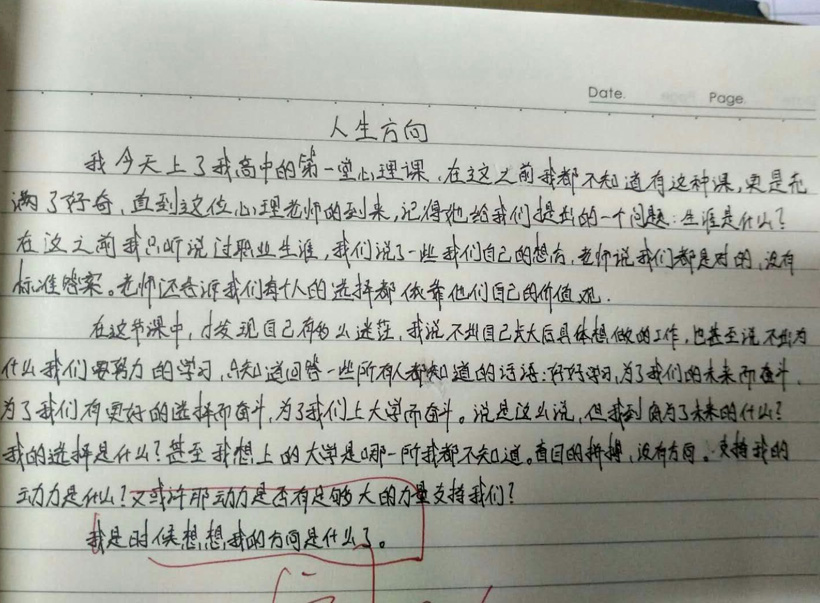 Date.
Page.
人生方向
我今天上了我高中的第一堂心理课，在这之前我都不知道有这种课，更是充
满了好奇，直到这位心理老师的到来，记得她给我们提出的一个问题：生涯是什么？
在这之前我只听说过职业生涯，我们说了一些我们自己的想法，老师说我们都是对的，没有
标准答案。老师还告诉我们每个人的选择都依靠他们自己的价值观．
在这节课中，才发现自己有多么迷茫，我说不出自己长大后具体想做的工作，也甚至说不出为
什么我们要努力的学习，只知道回答一些所有人都知道的话语：好好学习，为了我们的未来而奋斗．
为了我们有更好的选择而奋斗，为了我们上大学而奋斗。说是这么说，但我到底为了未来的什么？
我的选择是什么？甚至我想上的大学是哪一所我都不知道。盲目的拼搏，没有方向。支持我的
动力是什么？又或许那动力是否有足够大的力量支持我们？
我是时候想想我的方向是什么了。